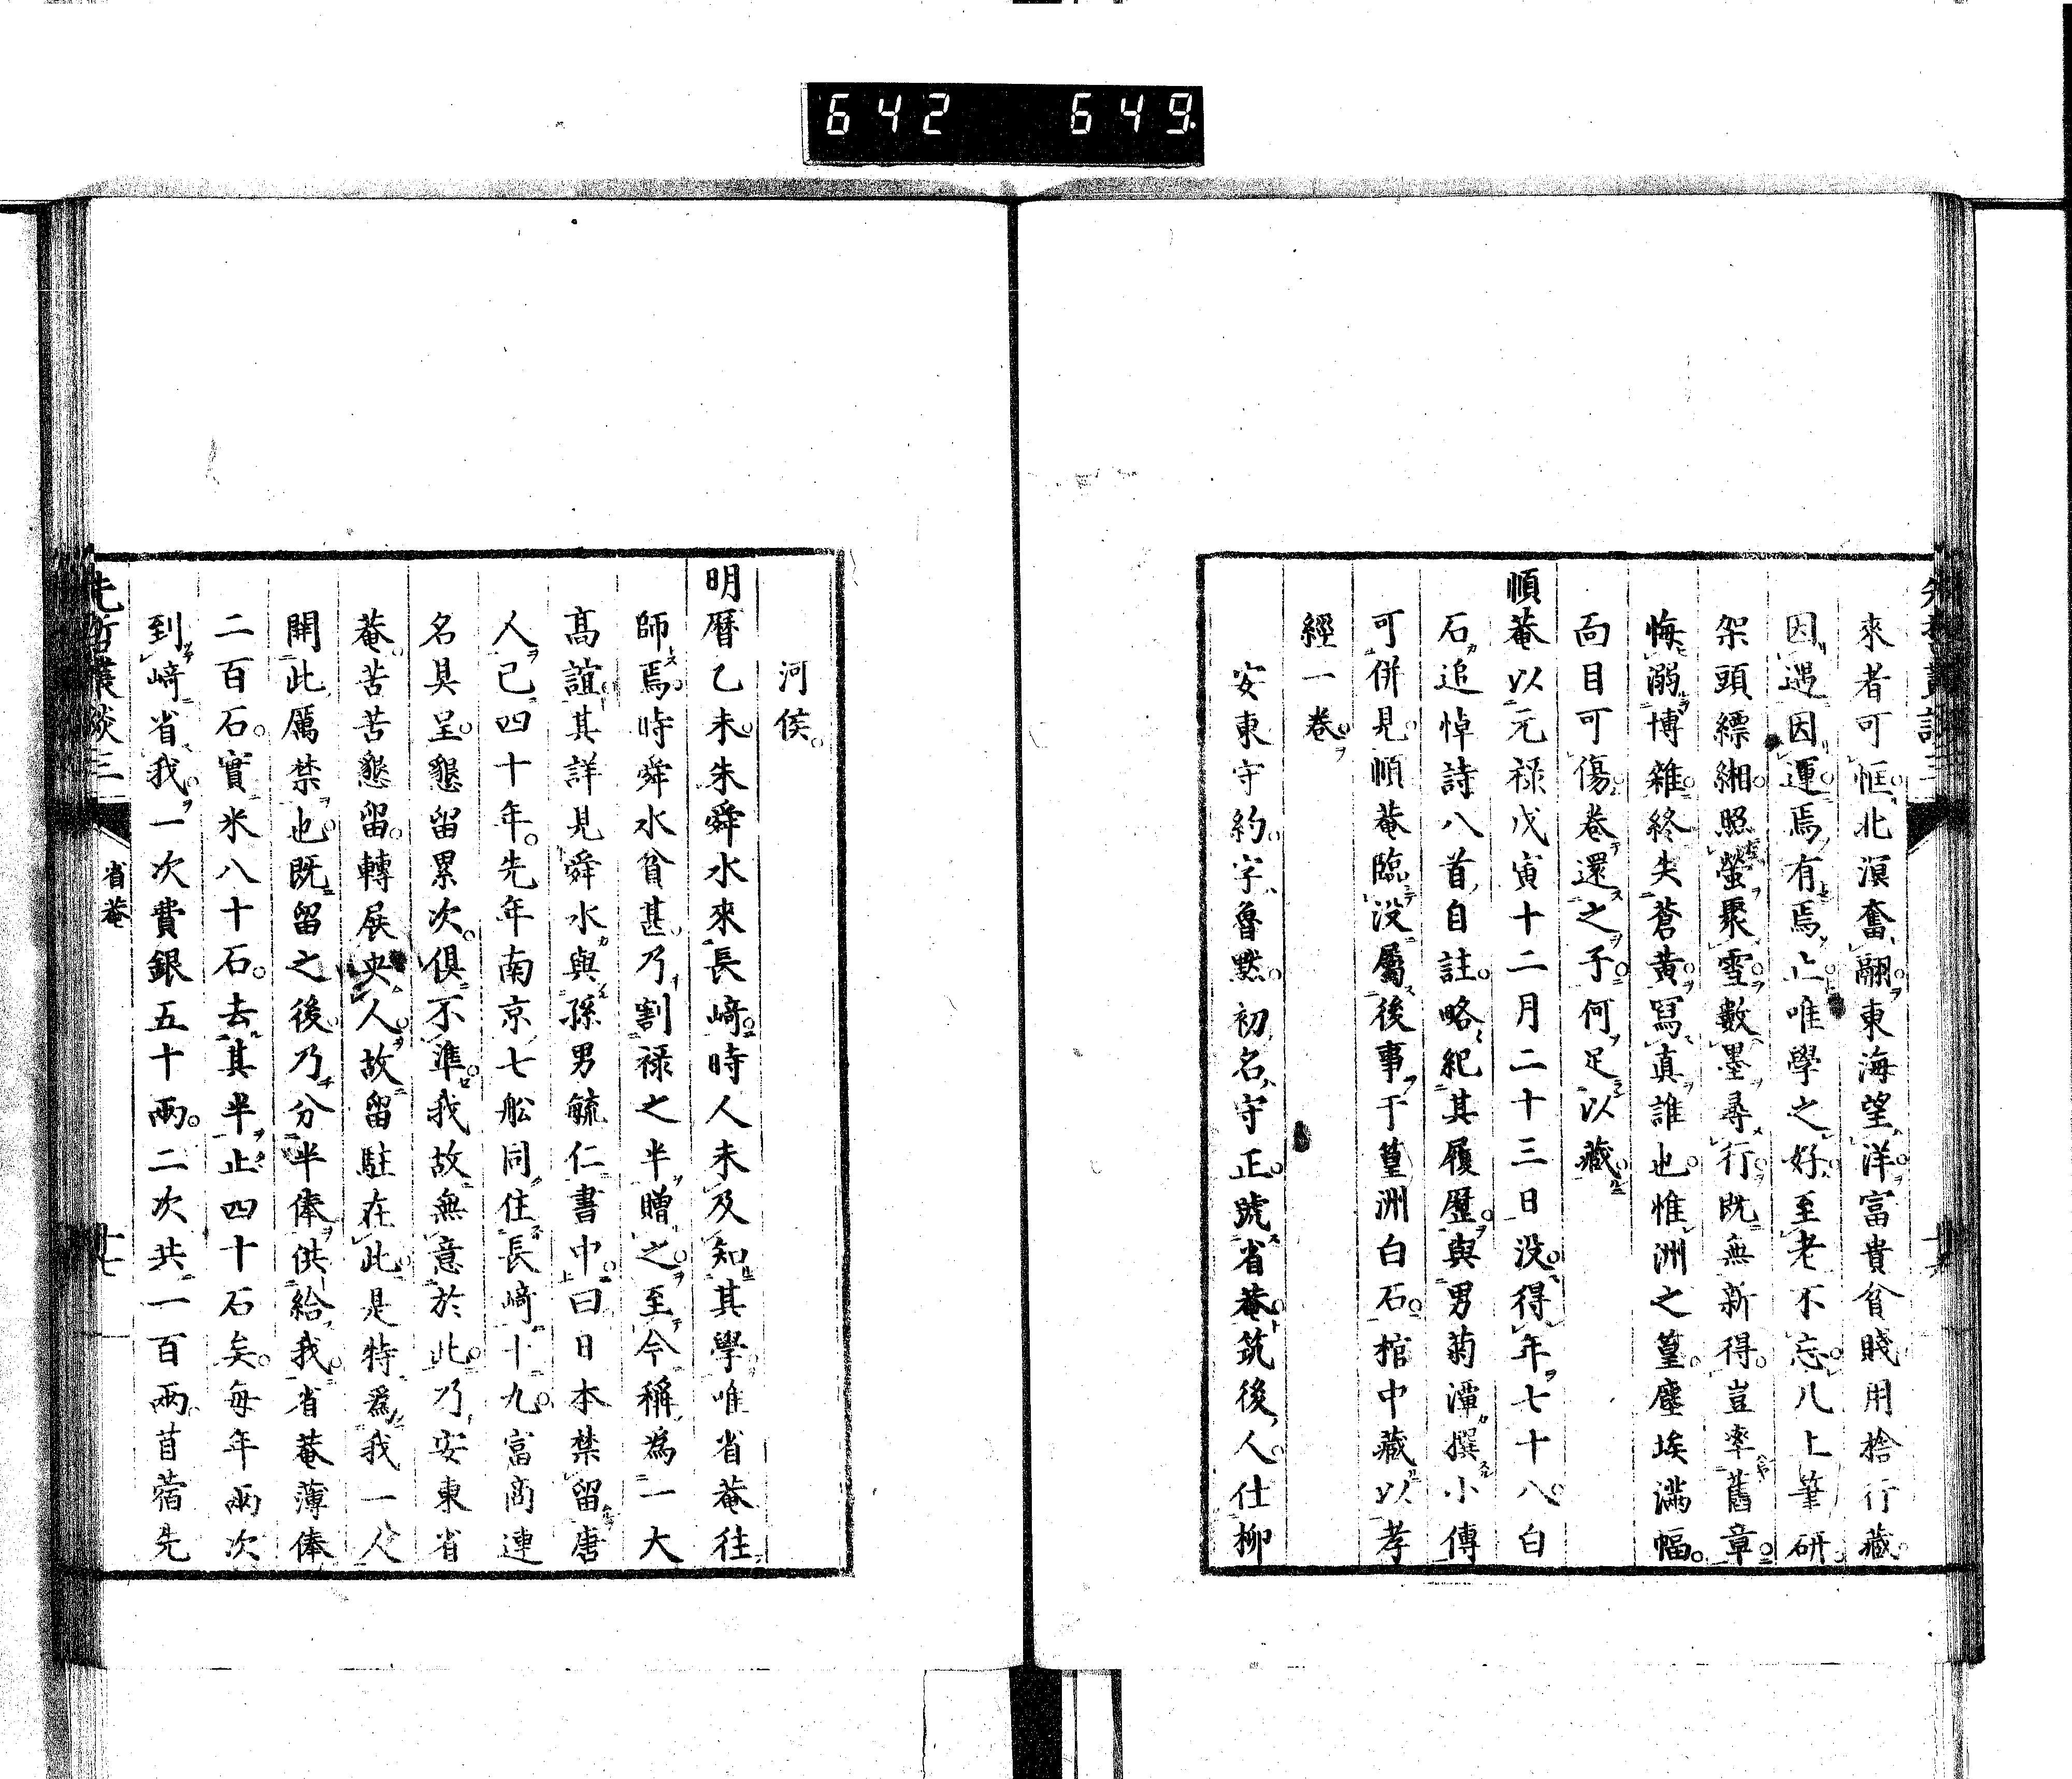 642 649
來者可恇。北溟奮翮。東海望洋。富貴貧賤用捨行藏。
因遇因運焉有焉止。唯學之好。至老不忘。几上筆研。
架頭縹緗。照螢聚雪。數墨尋行。既無新得。豈率舊章。
悔溺博雜。終失蒼黃。寫真誰也。惟洲之篁。塵埃滿幅。
面目可傷。卷還之子。何足以藏。
順菴以元禄戊寅十二月二十三日没。得年七十八。白
石追悼詩八首。自註略紀其履歷。與男菊潭撰小傳
可併見。順菴臨没。屬後事于篁洲白石。棺中藏以孝
經一卷。
安東守約。字魯默。初名守正。號省菴。筑後人。仕柳
河侯。
明曆乙未。朱舜水來長﨑。時人未及知其學。唯省菴往
師焉。時舜水貧甚。乃割禄之半贈之。至今稱為一大
高誼。其詳見舜水與孫男毓仁書中。曰日本禁留唐
人已四十年。先年南京七舩同住長﨑。十九富商連
名具呈。懇留累次。俱不準。我故無意於此。乃安東省
菴苦苦懇留。轉展央人。故留駐在此。是特為我一人
開此厲禁也。既留之後。乃分半俸供給我。省菴薄俸
二百石。實米八十石。去其半。止四十石矣。每年兩次
到﨑省我。一次費銀五十兩。二次共一百兩。苜蓿先
先哲叢談三
省菴
十七